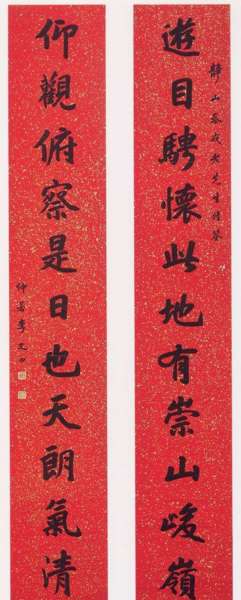 遊目騁懷此地有崇山峻嶺
仰觀俯察是日也天朗氣清
仲若李文田